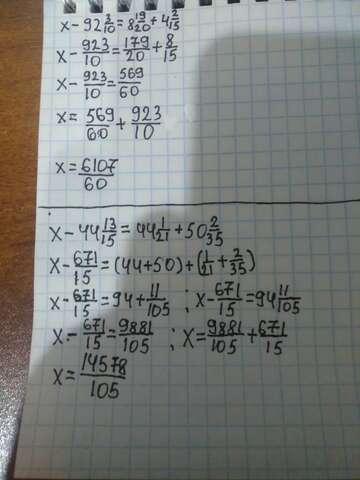 x - 92 3/10 = 8 19/20 + 4 2/15
x - 923/10 = 179/20 + 8/15
x - 923/10 = 569/60
x = 569/60 + 923/10
x = 6107/60
x - 44 13/15 = 44 1/21 + 50 2/35
x - 671/15 = (44+50) + (1/21 + 2/35)
x - 671/15 = 94 + 11/105 ; x - 671/15 = 94 11/105
x - 671/15 = 9881/105 ; x = 9881/105 + 671/15
x = 14578/105